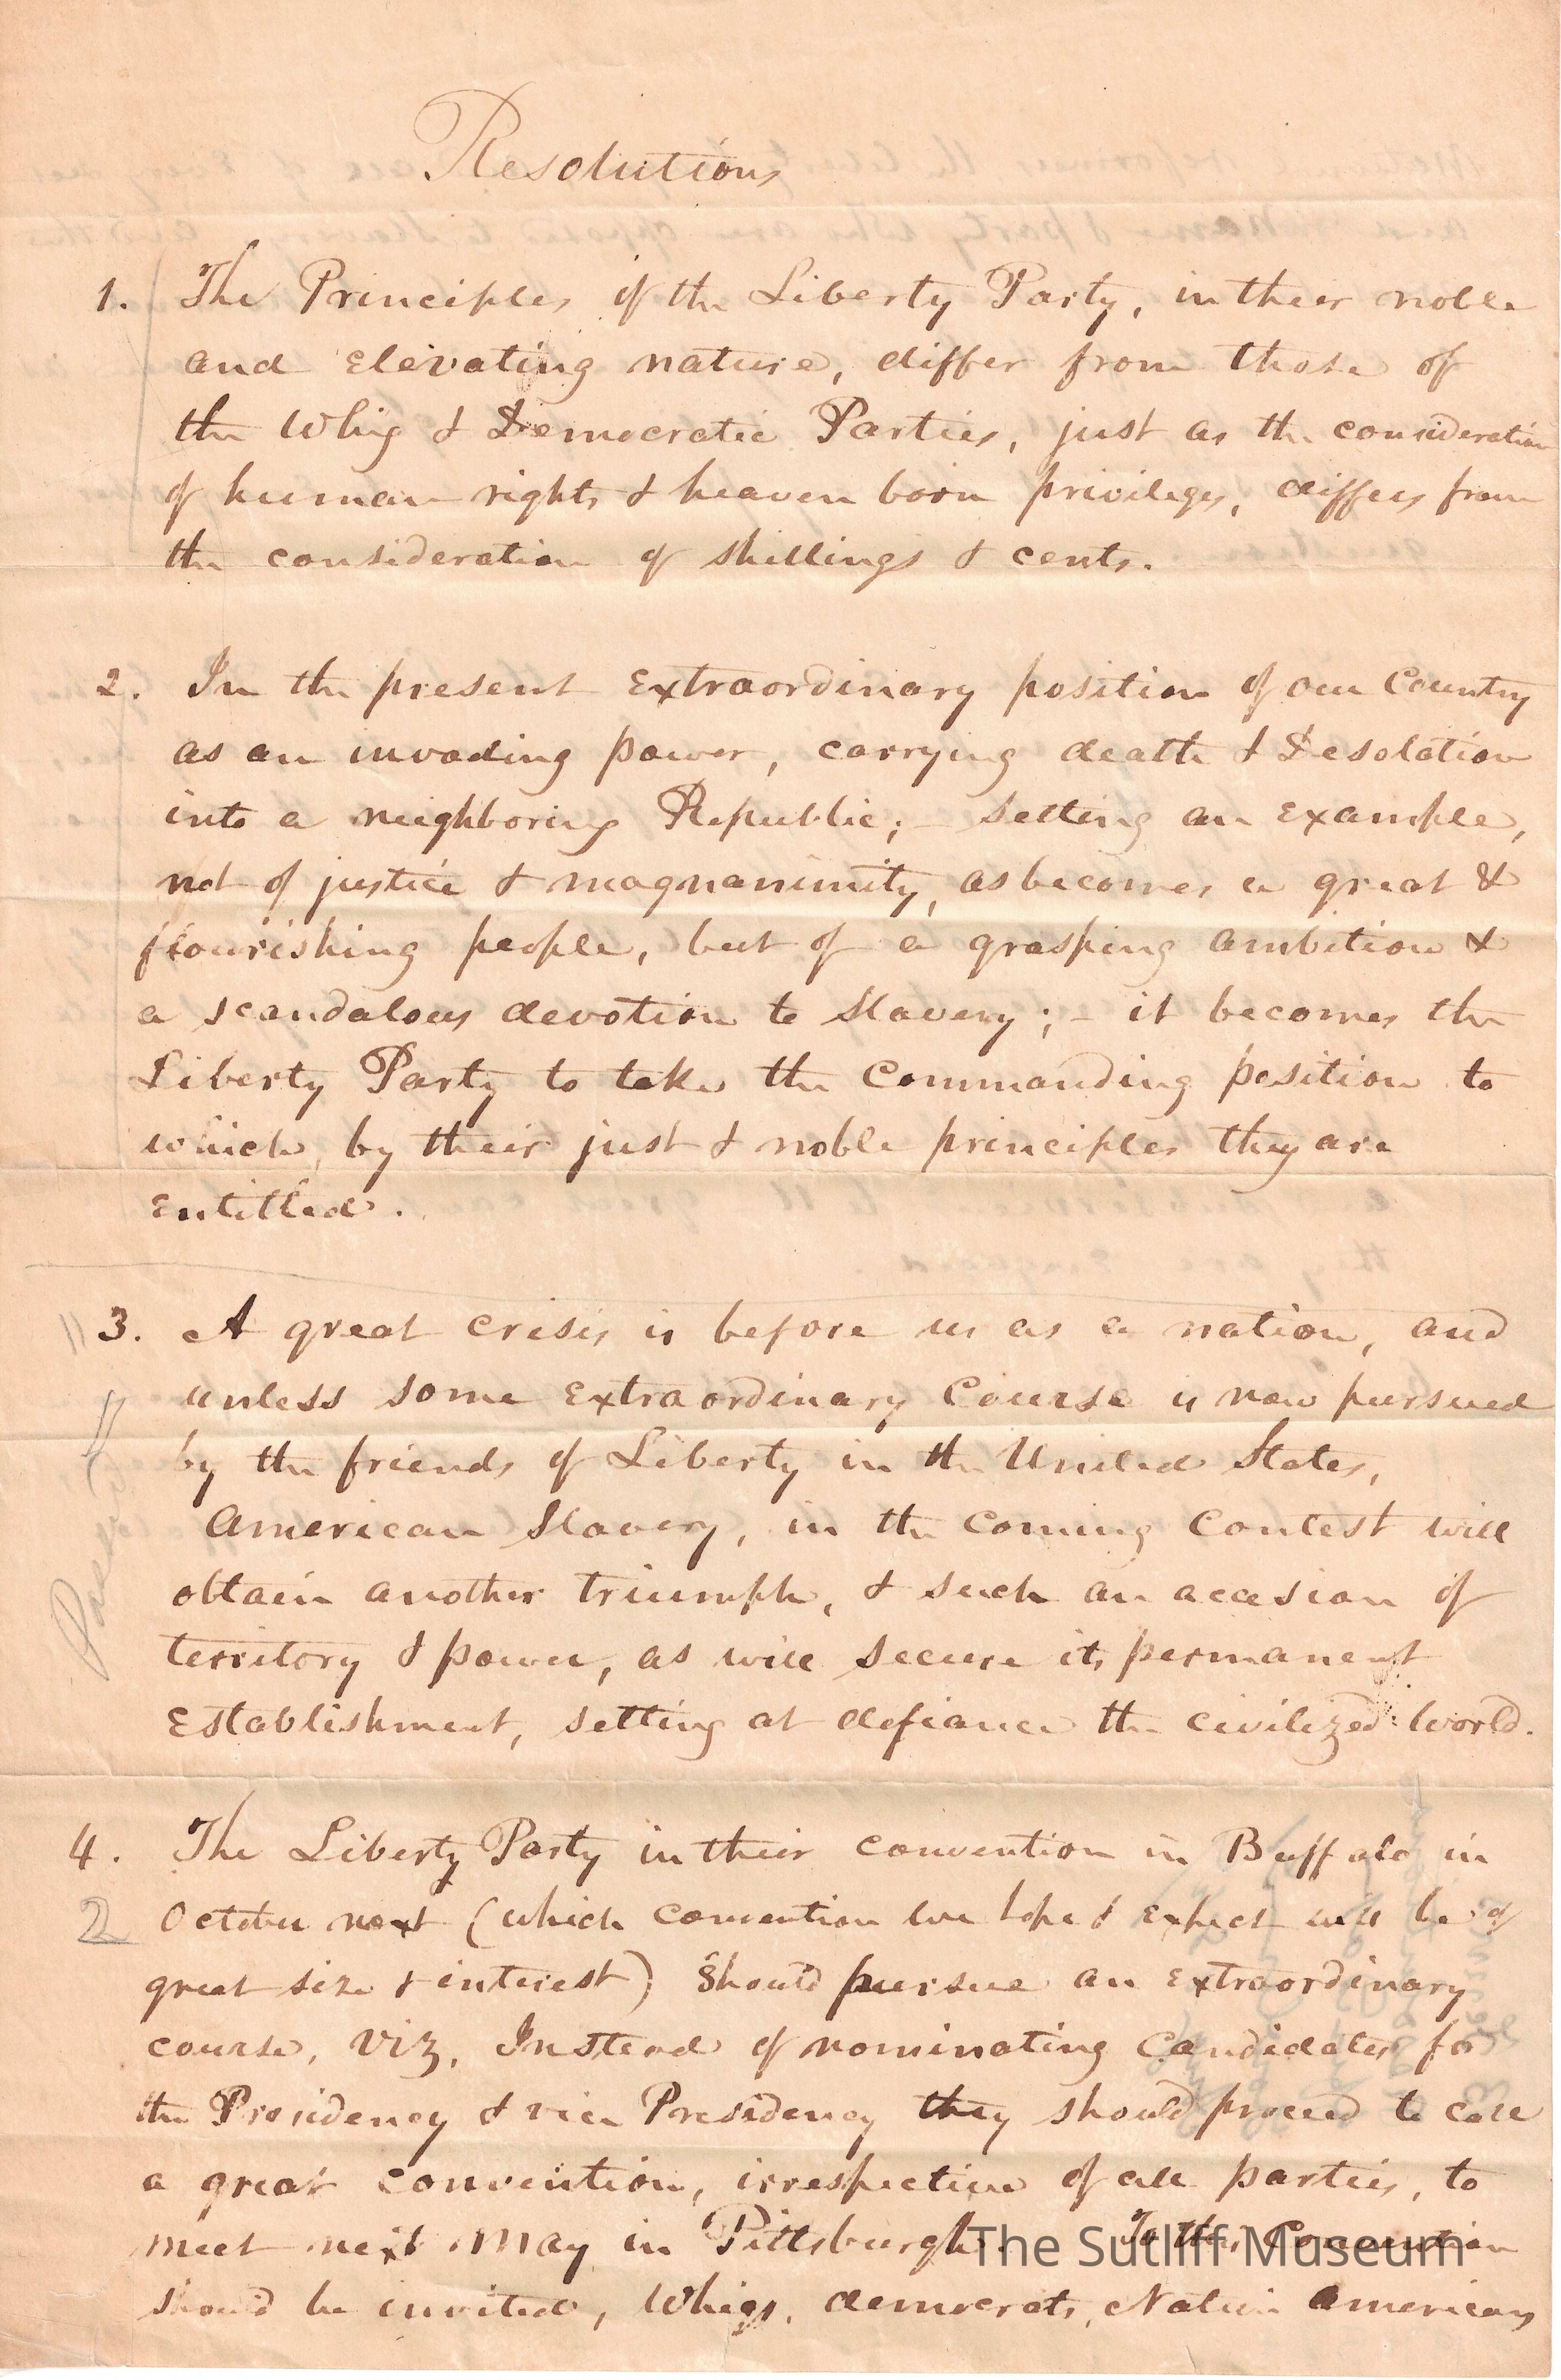 Resolutions
1. The Principles of the Liberty Party, in their noble
and Elevating nature, differ from those of
the Whig & Democratic Parties, just as the consideration
of human rights & heaven born privileges, differs from
the consideration of shillings & cents.
2. In the present Extraordinary position of our Country
as an invading power, carrying death & Desolation
into a neighboring Republic; - setting an Example,
not of justice & magnanimity, as becomes a great &
flourishing people, but of a grasping ambition &
a scandalous devotion to Slavery; - it becomes the
Liberty Party to take the Commanding position to
which, by their just & noble principles they are
Entitled.
3. A great crisis is before us as a nation, and
unless some Extraordinary Course is now pursued
by the friends of Liberty in the United States,
American Slavery, in the Coming Contest will
obtain another triumph, & such an accesion of
territory & power, as will secure its permanent
Establishment, setting at defiance the civilized World.
4. The Liberty Party in their convention in Buffalo in
2 October next (which convention we hope & Expect will be of
great size & interest) Should pursue an Extraordinary
course, Viz, Instead of nominating Candidates for
the Presidency & vice Presidency they should proceed to call
a great convention, irrespective of all parties, to
meet next May in Pittsburgh. To this Convention
should be invited, Whigs, democrats, Native Americans
The Sutliff Museum